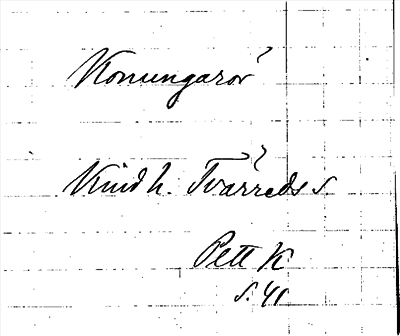 Konungarör
Kind h. Tvärreds s.
Pett K
s. 41